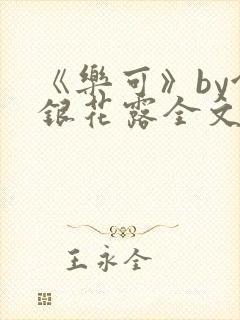 《樂可》by
銀花露全文
王永全